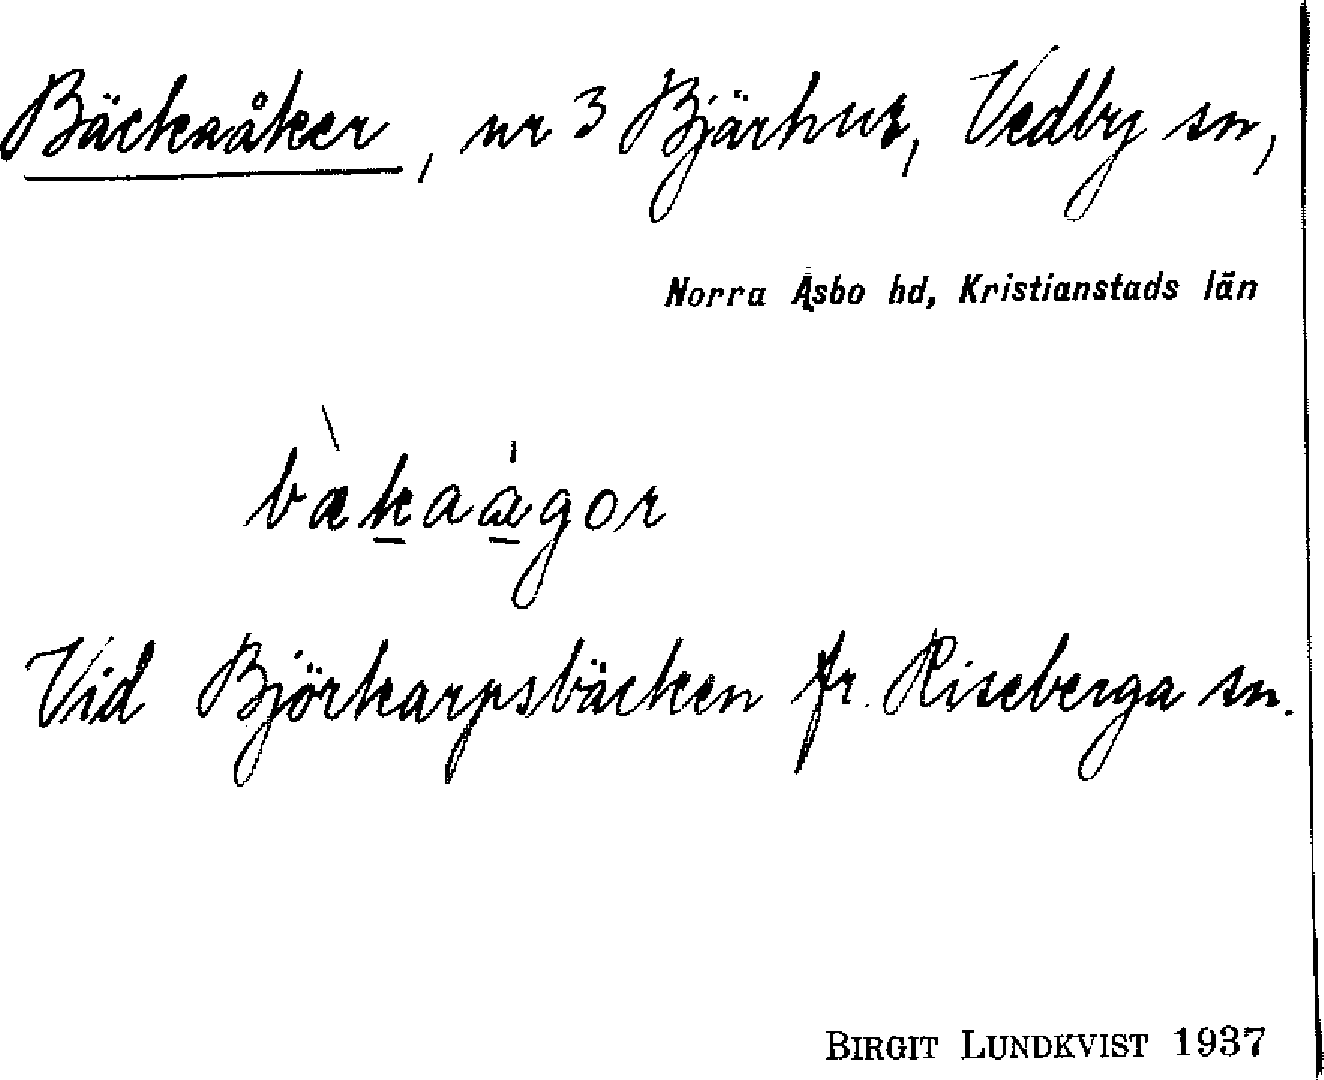 Bäckaåker, nr 3 Bjärhus, Vedby sn,
Norra Åsbo hd, Kristianstads län
Vid Björkarpsbäcken fr. Riseberga sn.
BIRGIT LUNDKVIST 1937